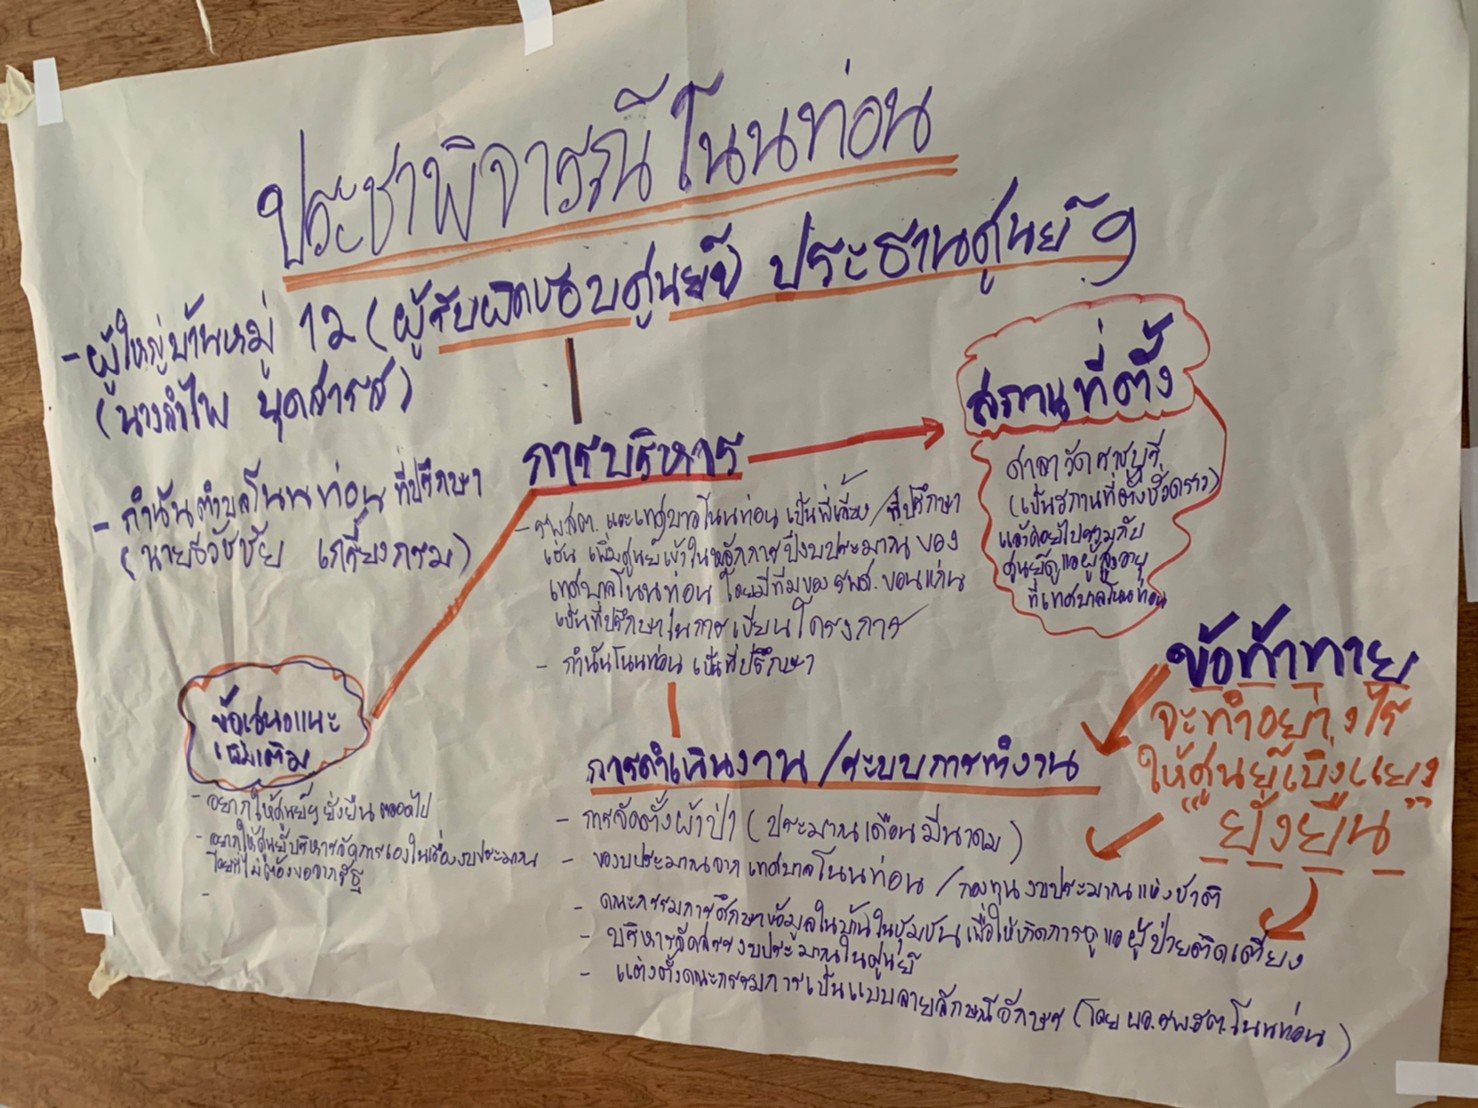 ประชาพิจารณ์โนนท่อน
- ผู้ใหญ่บ้านหมู่ 12 (ผู้รับผิดชอบศูนย์ฯ ประธานศูนย์ฯ)
(นางลำไพ บุดสารส)
- กำนันตำบลโนนท่อน ที่ปรึกษา
(นายธวัชชัย เกลี้ยงกรม)
การบริหาร
- รพ.สต. และเทศบาลโนนท่อน เป็นพี่เลี้ยง / ที่ปรึกษา
เช่น เพิ่มศูนย์เข้าในหลักการปีงบประมาณ ของ
เทศบาลโนนท่อน โดยมีทีมของ รพศ. ขอนแก่น
เป็นที่ปรึกษาในการเขียนโครงการ
- กำนันโนนท่อน เป็นที่ปรึกษา
สถานที่ตั้ง
ศาลาวัดราชบุรี
(เป็นสถานที่ตั้งชั่วคราว)
แล้วค่อยไปรวมกับ
ศูนย์ดูแลผู้สูงอายุ
ที่เทศบาลโนนท่อน
ข้อเสนอแนะ
เพิ่มเติม
- อยากให้ศูนย์ฯ ยั่งยืน ตลอดไป
- อยากให้ศูนย์บริหารจัดการเองในเรื่องงบประมาณ
โดยที่ไม่ต้องขอจากรัฐ
-
ข้อท้าทาย
จะทำอย่างไร
ให้ศูนย์เบิ่งแยง
"ยั่งยืน"
การดำเนินงาน / ระบบการทำงาน
- การจัดตั้งผ้าป่า (ประมาณเดือน มีนาคม)
- ของบประมาณจาก เทศบาลโนนท่อน / กองทุน งบประมาณแห่งชาติ
- คณะกรรมการศึกษาข้อมูลในบ้านในชุมชน เพื่อให้เกิดการดูแล ผู้ป่วยติดเตียง
- บริหารจัดสรรงบประมาณในศูนย์
- แต่งตั้งคณะกรรมการเป็นแบบลายลักษณ์อักษร (โดย ผอ.รพ.สต.โนนท่อน)